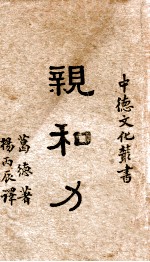 中德文化叢書
親和力
葛德著
楊丙辰譯